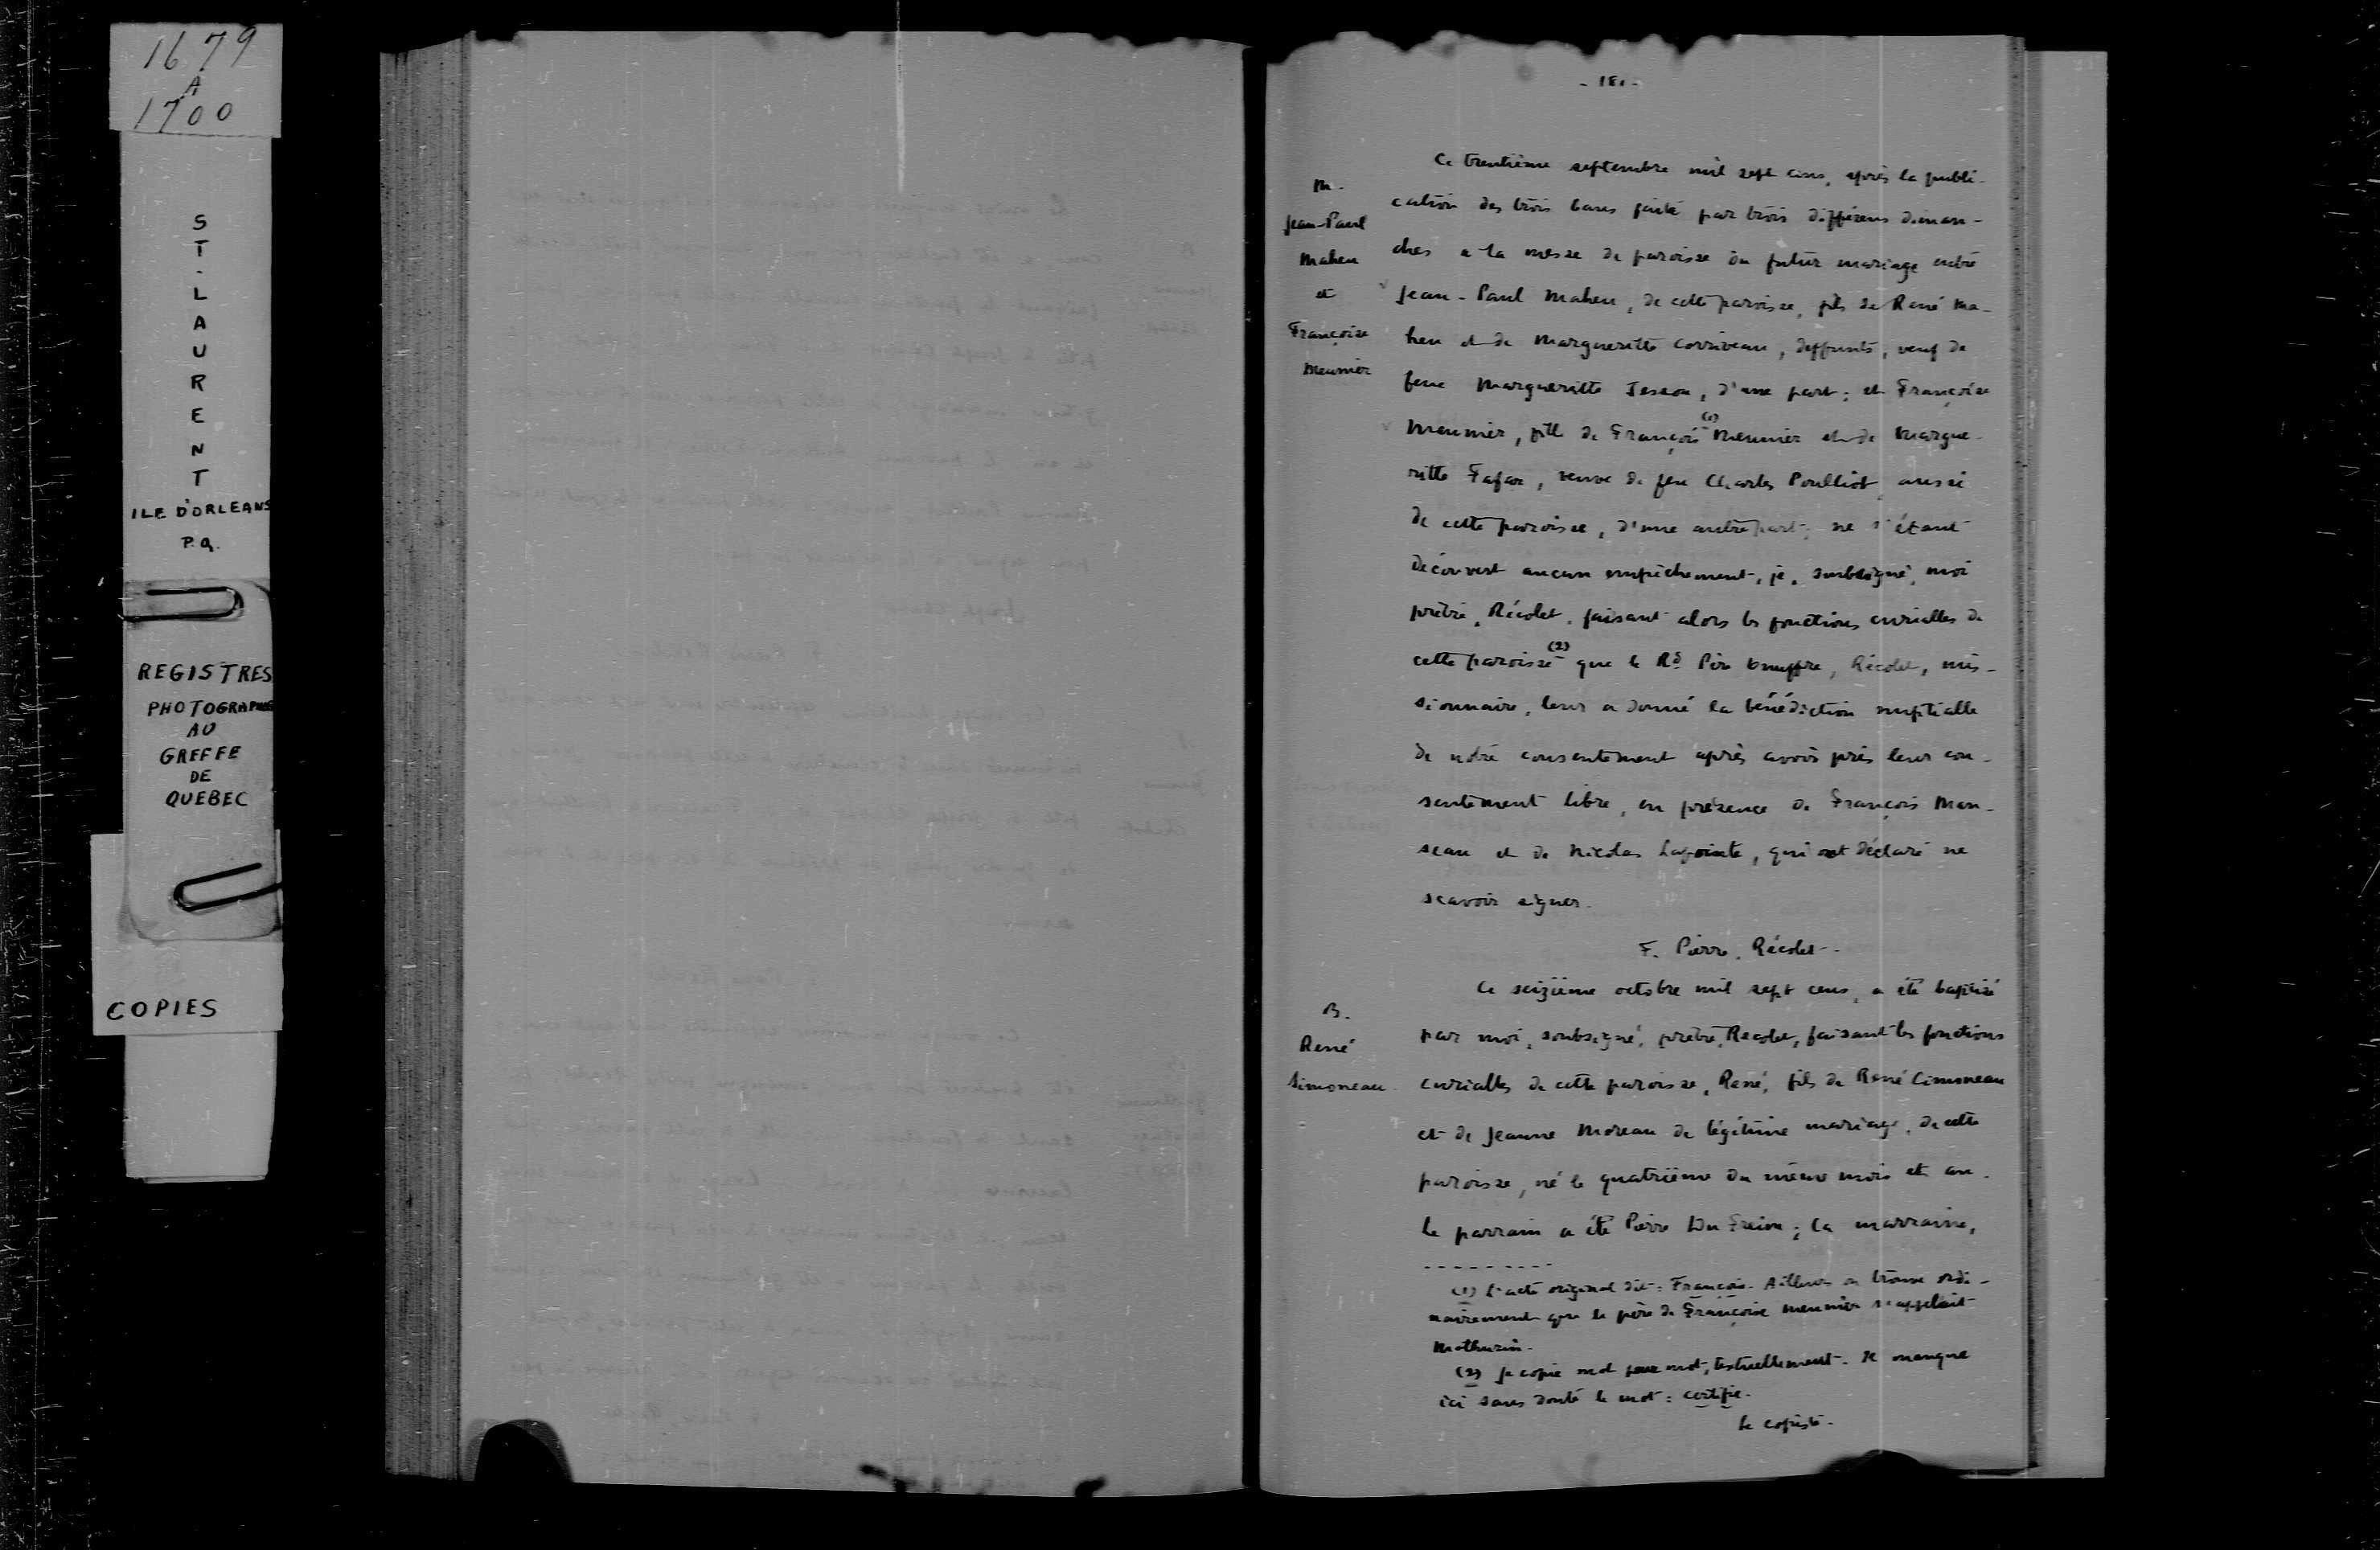 1679
A
1700
ST-LAURENT
ILE D'ORLEANS
P.Q.
REGISTRES
PHOTOGRAPHIES
AU
GREFFE
DE
QUEBEC
COPIES
- 181 -
M.
Jean-Paul
Maheu
et
Françoise
Meunier
Ce trentième septembre mil sept cens, après la publi-
cation des trois bans faite par trois différens diman-
ches a la messe de paroisse du futur mariage entre
Jean-Paul Maheu, de cette paroisse, fils de René Ma-
heu et de Margueritte Corriveau, deffunts, veuf de
feue Margueritte Tesson, d'une part; et Françoise
Meunier, fille de François (1) Meunier et de Margue-
ritte Fafar, veuve de feu Charles Poulliot, aussi
de cette paroisse, d'une autre part; ne s'étant
découvert aucun empêchement, je, soubsigné, moi
prêtre, Récolet, faisant alors les fonctions curialles de
cette paroisse (2) que le Rd. Père Récolet, mis-
sionnaire, leur a donné la bénédiction nuptialle
de notre consentement après avoir pris leur con-
sentement libre, en présence de François Man-
seau et de Nicolas Lapointe, qui ont déclaré ne
scavoir signer.
F. Pierre, Récolet.
B.
René
Simoneau
Ce seizième octobre mil sept cens, a été baptisé
par moi, soubsigné, prêtre, Recolet, faisant les fonctions
curialles de cette paroisse, René, fils de René Cimoneau
et de Jeanne Moreau de légitime mariage, de cette
paroisse, né le quatrième du même mois et an.
Le parrain a été Pierre Du Freine; la marraine,
(1) L'acte original dit: François. Ailleurs on trouve ordi-
nairement que le père de Françoise Meunier s'appelait
Mathurin.
(2) Je copie mot pour mot, textuellement. Il manque
ici sans doute le mot: certifie.
Le copiste.